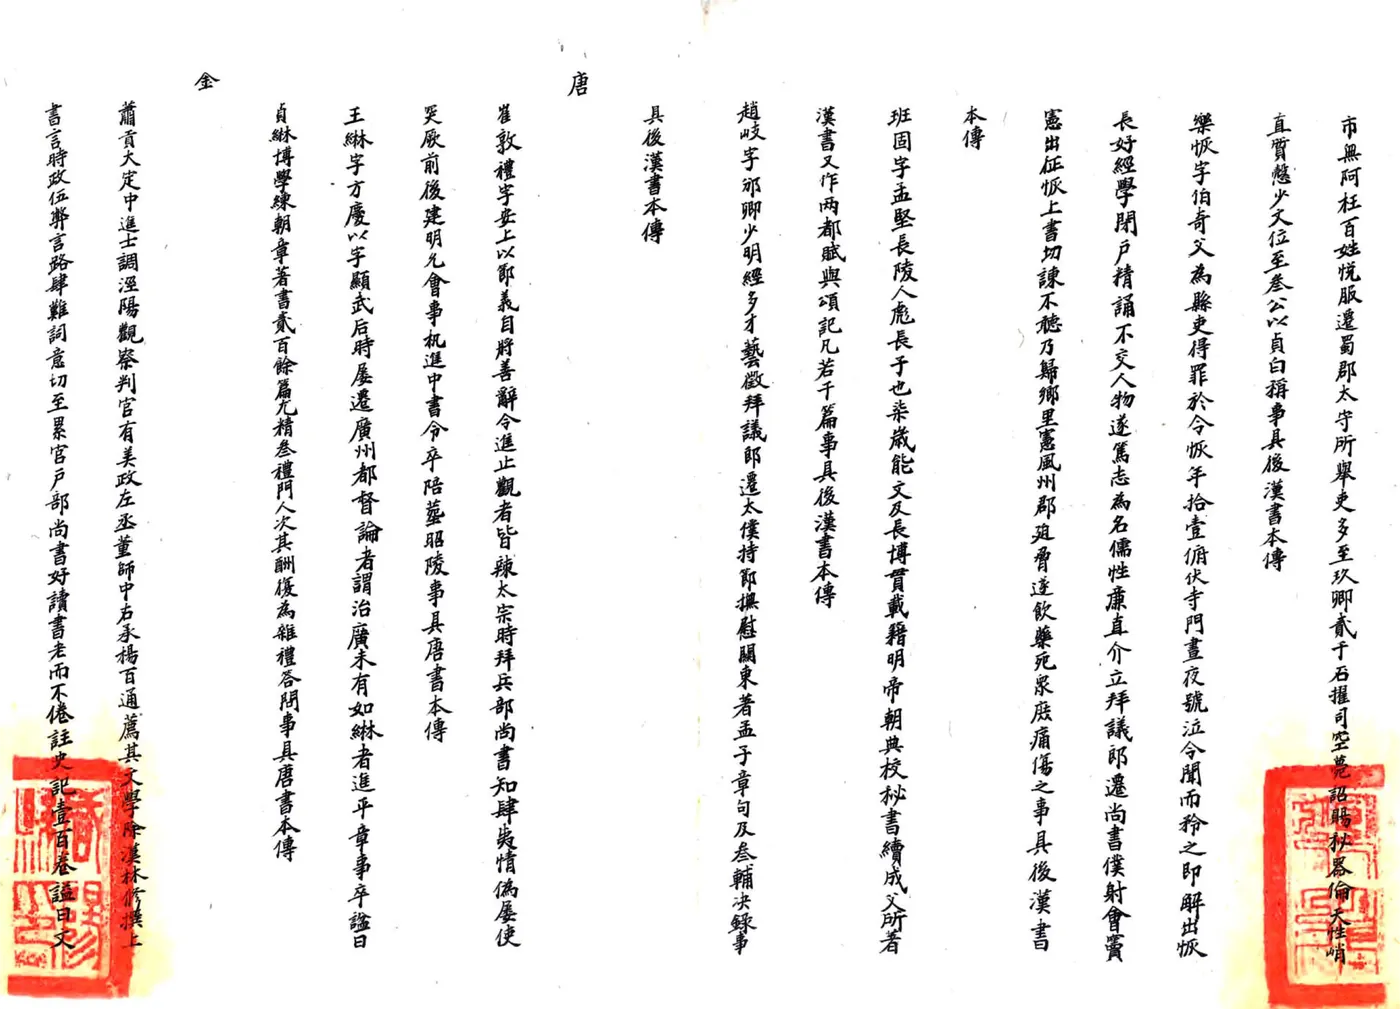 市無阿枉百姓悅服遷蜀郡太守所舉吏多至玖卿貳千石擢司空薨詔賜秘器倫天性峭
直質慤少文位至叁公以貞白稱事具後漢書本傳
樂恢字伯奇父為縣吏得罪於令恢年拾壹俯伏寺門晝夜號泣令聞而矜之即解出恢
長好經學閉戶精誦不交人物遂篤志為名儒性廉直介立拜議郎遷尚書僕射會竇
憲出征恢上書切諫不聽乃歸鄉里憲風州郡廹脅遂飲藥死衆庶痛傷之事具後漢書
本傳
班固字孟堅長陵人彪長子也柒歲能文及長博貫載籍明帝朝典校秘書續成父所著
漢書又作兩都賦與頌記凡若干篇事具後漢書本傳
趙岐字邠卿少明經多才藝徵拜議郎遷太僕持節撫慰關東著孟子章句及叁輔決錄事
具後漢書本傳
唐
崔敦禮字安上以節義自將善辭令進止觀者皆竦太宗時拜兵部尚書知肆夷情偽屢使
突厥前後建明允會事机進中書令卒陪塟昭陵事具唐書本傳
王綝字方慶以字顯武后時屢遷廣州都督論者謂治廣未有如綝者進平章事卒謚曰
貞綝博學練朝章著書貳百餘篇尤精叁禮門人次其酬復為雜禮答問事具唐書本傳
金
蕭貢大定中進士調涇陽觀察判官有美政左丞董師中右丞楊百通薦其文學除漢林修撰上
書言時政伍弊言路肆難詞意切至累官戶部尚書好讀書老而不倦註史記壹百卷謚曰文